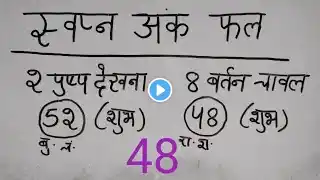 स्वप्न अंक फल
२ पुष्प देखना 8 बर्तन चावल
52 (शुभ) 48 (शुभ)
बु. च. रा. श.
48